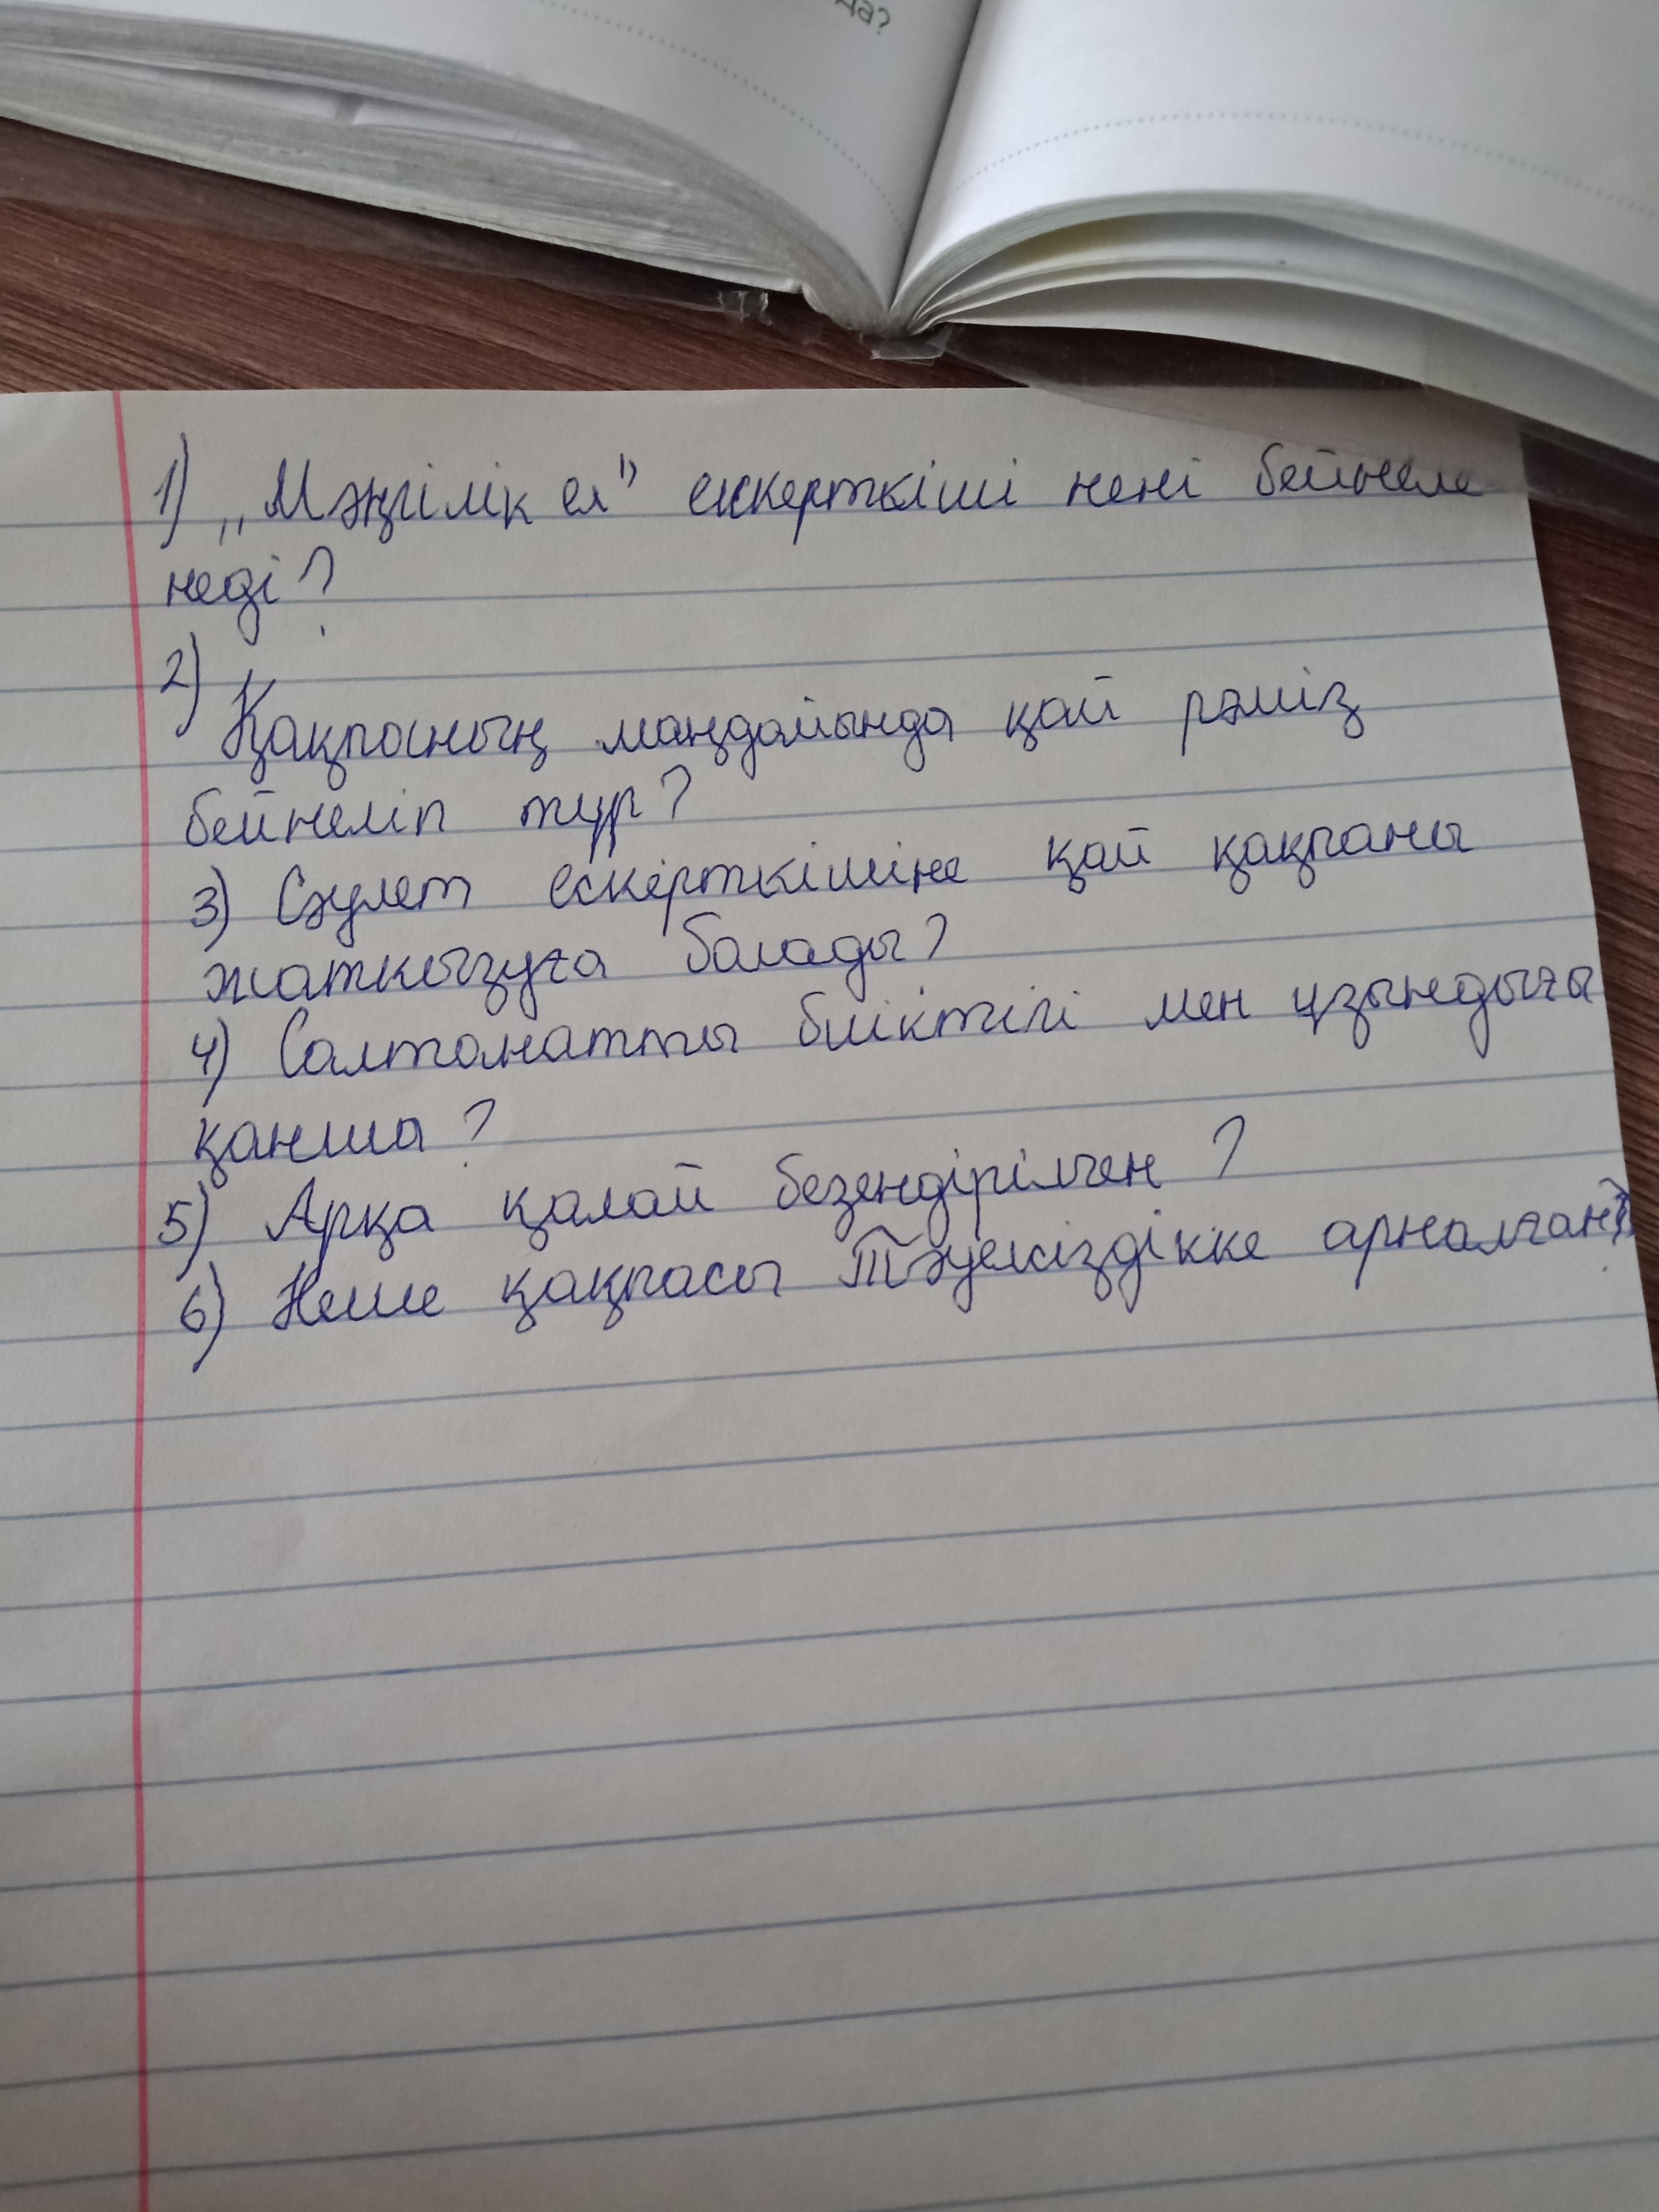 да?
1) „Мәңгілік ел" ескерткіші нені бейнеле
неді?
2)
Қақпаның маңдайында қай рәміз
бейнеліп тұр?
3) Сәулет ескерткішіне қай қақпаны
жаткызуға болады?
4) Салтанатты биіктігі мен ұзындығы
қанша?
5) Арқа қалай безендірілген?
6) Неше қақпасы Тәуелсіздікке арналған?